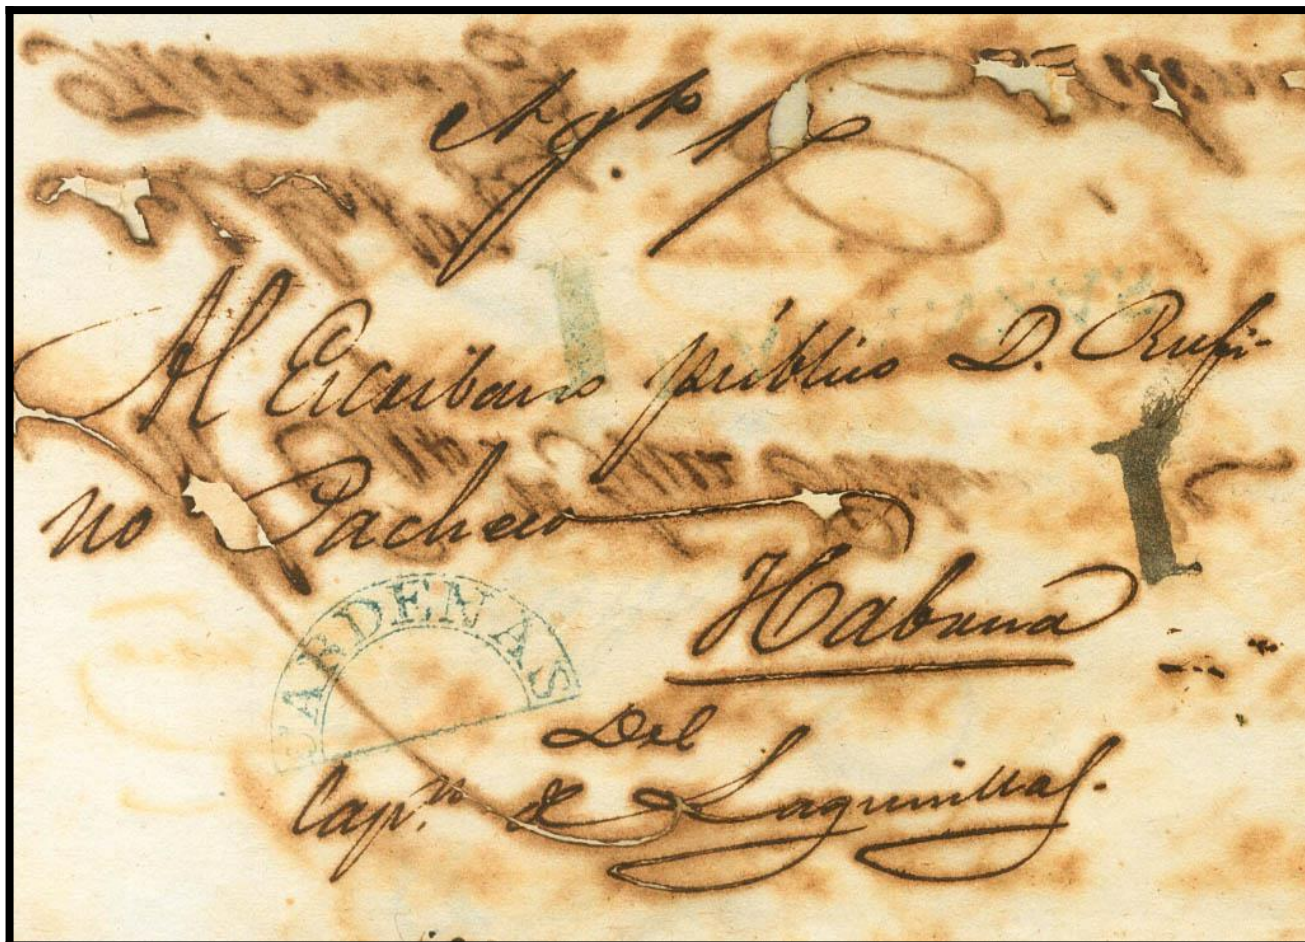 Agto 1º
Al Escribano público D. Rufi-
no Pacheco
Habana
CARDENAS
Del
Capn. de Lagunillas.